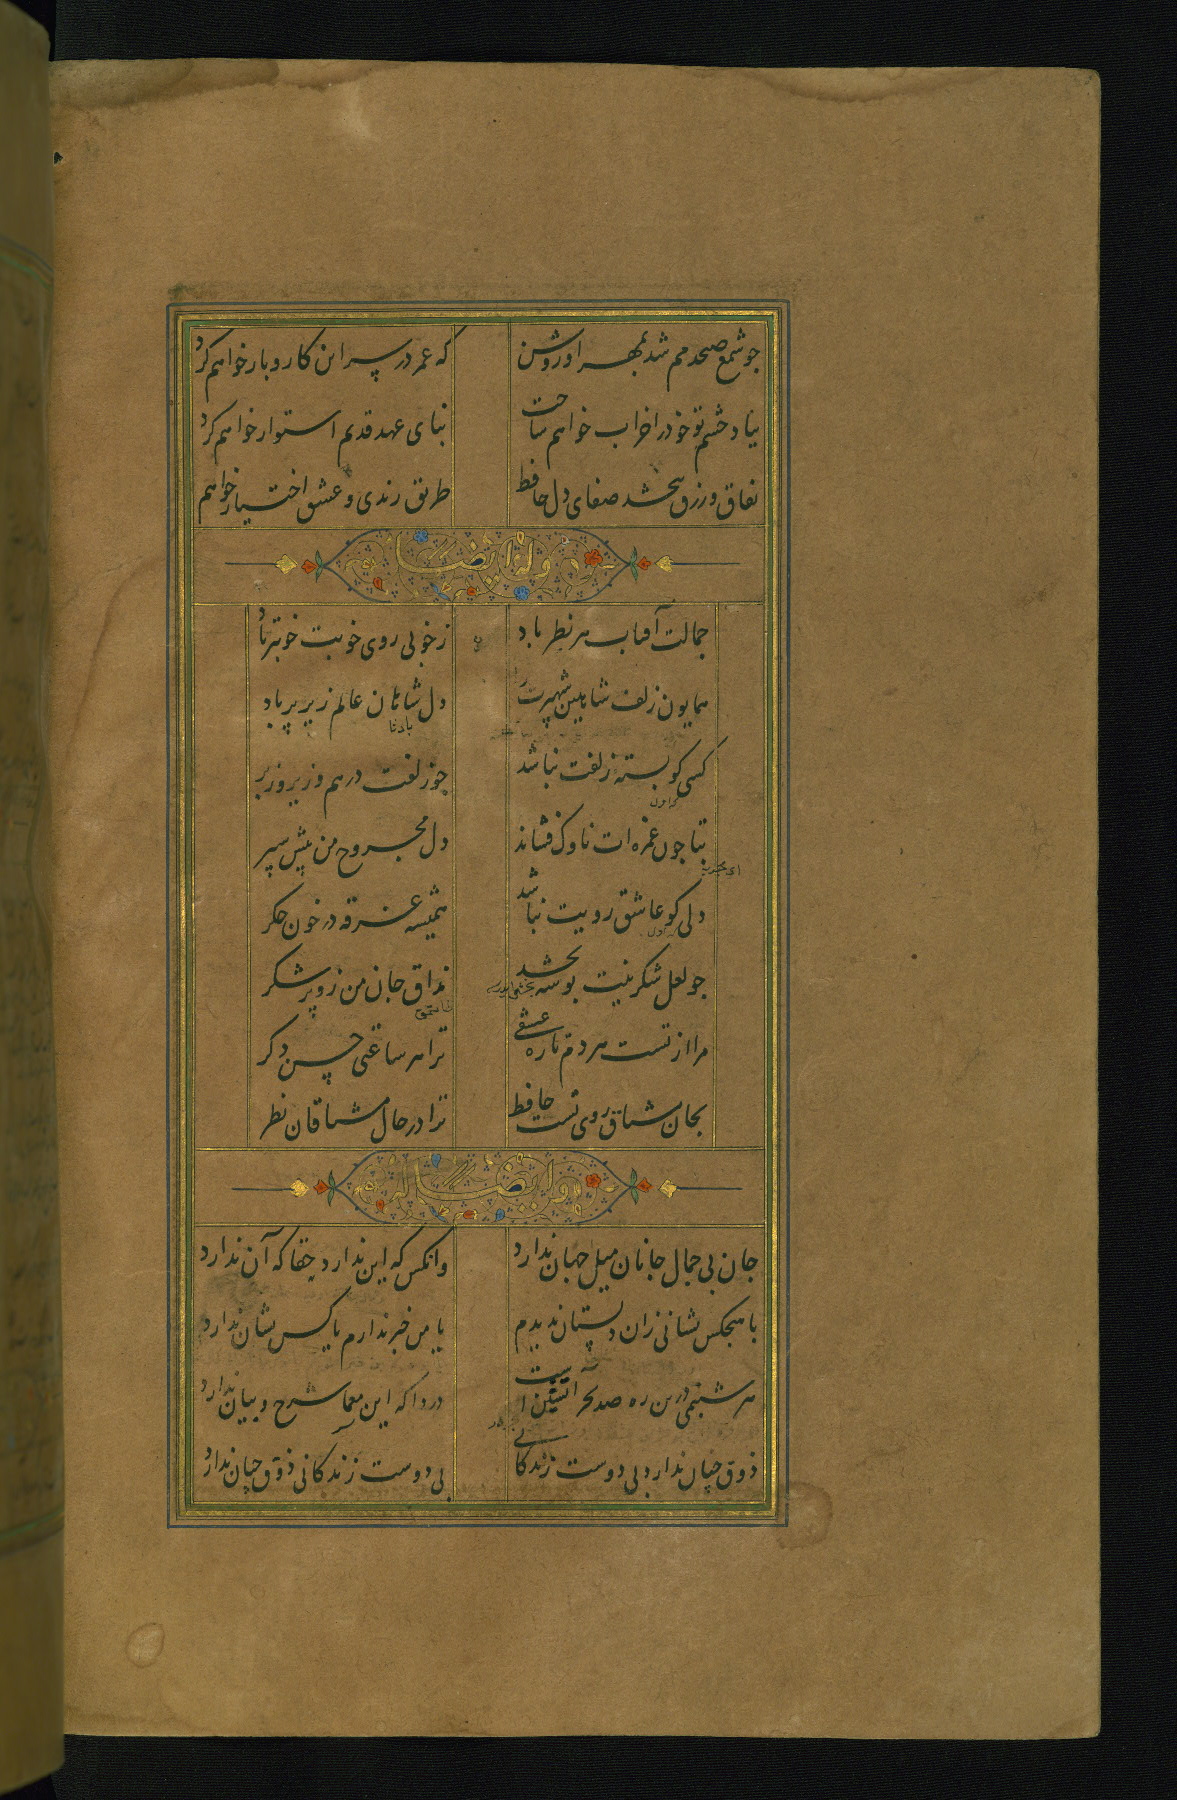 چو شمع صبحدمم شد بمهر او روشن که عمر در سر این کار و بار خواهم کرد
بیاد چشم تو خود را خراب خواهم ساخت بنای عهد قدیم استوار خواهم کرد
نفاق و زرق نبخشد صفای دل حافظ طریق رندی و عشق اختیار خواهم کرد
وله ایضا
جمالت آفتاب هر نظر باد ز خوبی روی خوبت خوبتر باد
همایون زلف شاهین شهپرت را دل شاهان عالم زیر پر باد
کسی کو بسته زلفت نباشد چو زلفت درهم و زیر و زبر
بتا چون غمزه ات ناوک فشاند دل مجروح من پیش سپر
دلی کو عاشق رویت نباشد همیشه غرقه در خون جکر
چو لعل شکرینت بوسه بخشد مذاق جان من زو پر شکر
مرا از تست هر دم تازه عشقی ترا هر ساعتی حسن دکر
بجان مشتاق روی تست حافظ ترا در حال مشتاقان نظر
و ایضا له
جان بی جمال جانان میل جهان ندارد وانکس که این ندارد حقا که آن ندارد
با هیچکس نشانی زان دلستان ندیدم یا من خبر ندارم یا کس نشان ندارد
هر شبنمی درین ره صد بحر آتشین است دردا که این معما شرح و بیان ندارد
ذوق چنان ندارد بی دوست زندکانی بی دوست زندکانی ذوق چنان ندارد